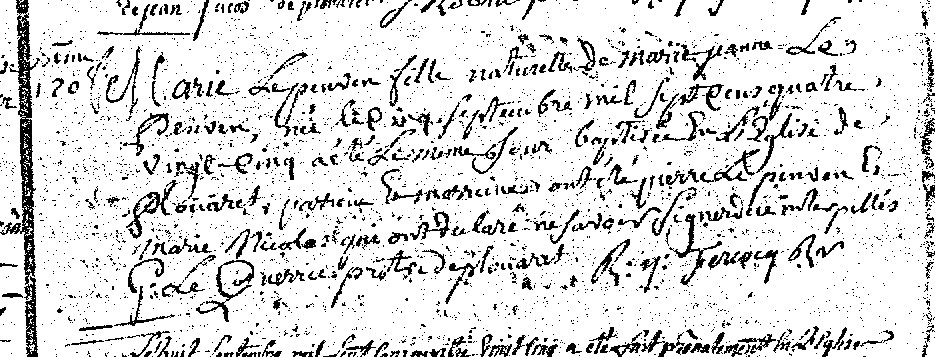 de jean
120 Marie Lepenven fille naturelle de marie jeanne Le
Penven, née le cinq septembre mil sept cens quatre
vingt-cinq a été le meme jour baptisée en L'Eglise de
Plouaret, parein et mareine ont été pierre Le penven et
marie Nicolas qui ont declaré ne savoir signer de ce interpellés
G: Le Querrec ptre de plouaret. Rr
Le huit septembre mil sept cens quatre vingt cinq a été fait L'Eglise